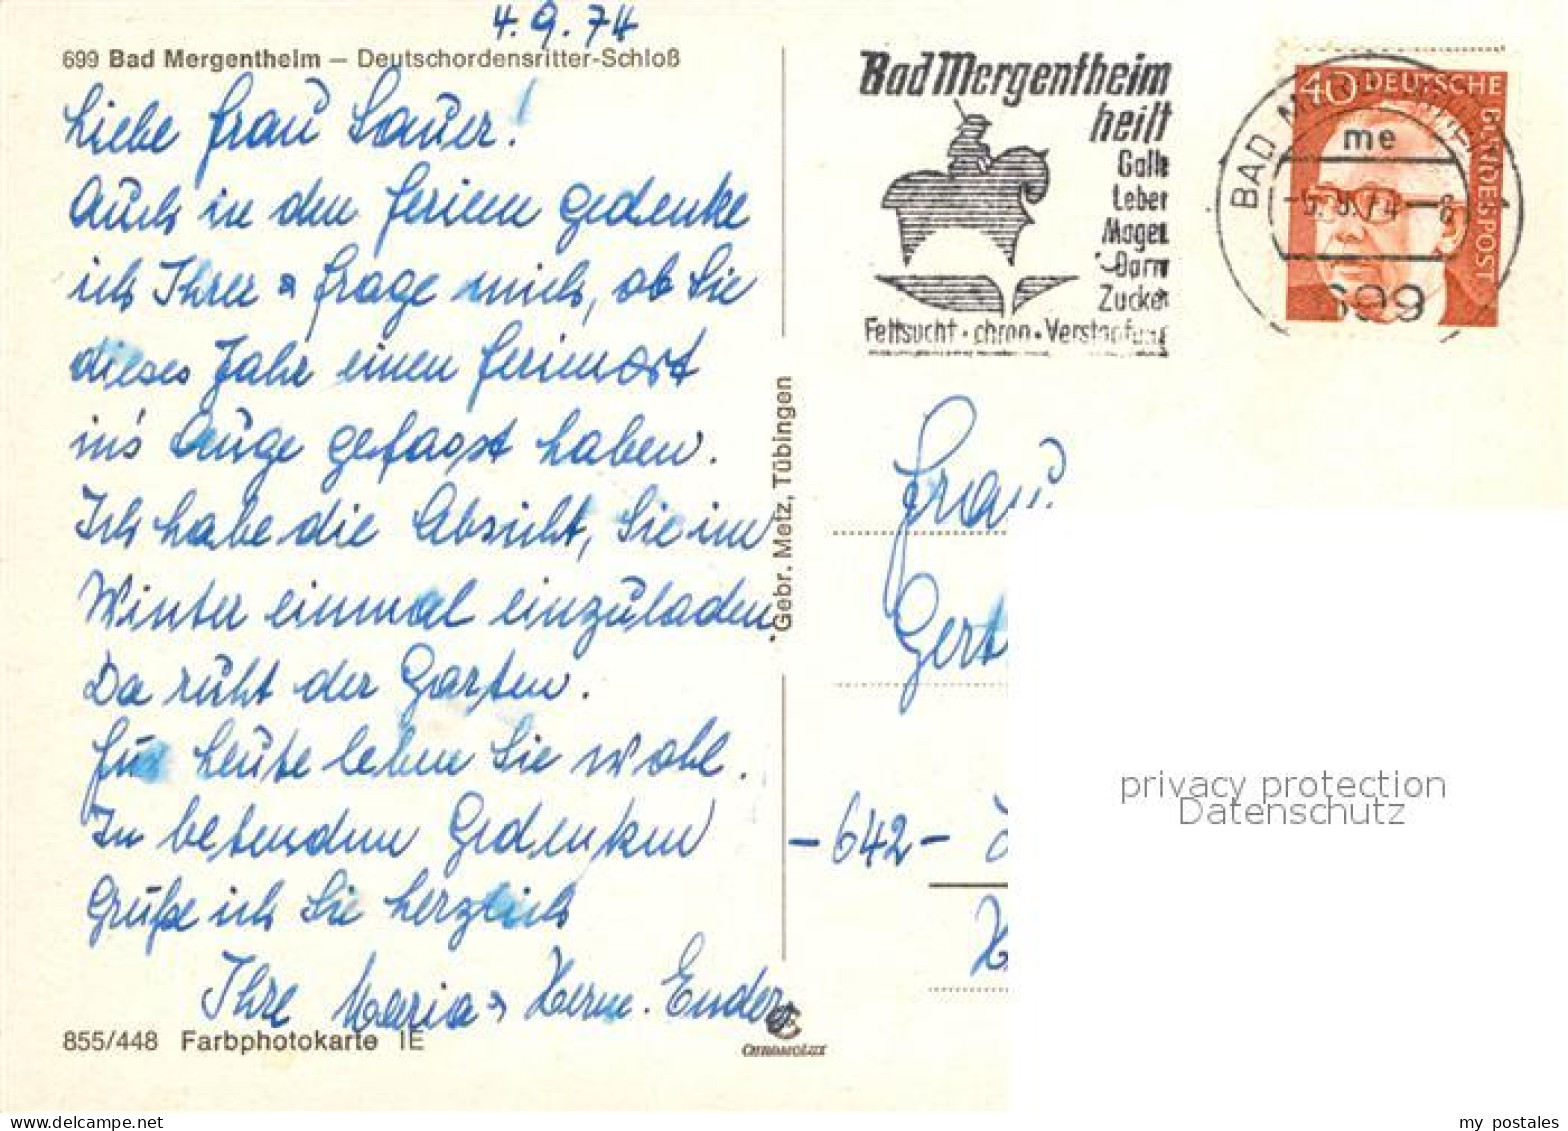 4.9.74
699 Bad Mergentheim — Deutschordensritter-Schloß
Liebe Frau Sauer!
Auch in den Ferien gedenke
ich Ihrer & frage mich, ob Sie
dieses Jahr einen Ferienort
in's Auge gefasst haben.
Ich habe die Absicht, Sie im
Winter einmal einzuladen.
Da ruht der Garten.
Für heute leben Sie wohl.
In betendem Gedenken
Grüße ich Sie herzlich
Ihre Maria & Herm. Ender
855/448 Farbphotokarte IE
CHROMOLUX
Gebr. Metz, Tübingen
Bad Mergentheim
heilt
Galle
Leber
Magen
Darm
Zucker
Fettsucht · chron. Verstopfung
40 DEUTSCHE BUNDESPOST
BAD
me
699
Frau
Gert
-642-
privacy protection
Datenschutz
my postales